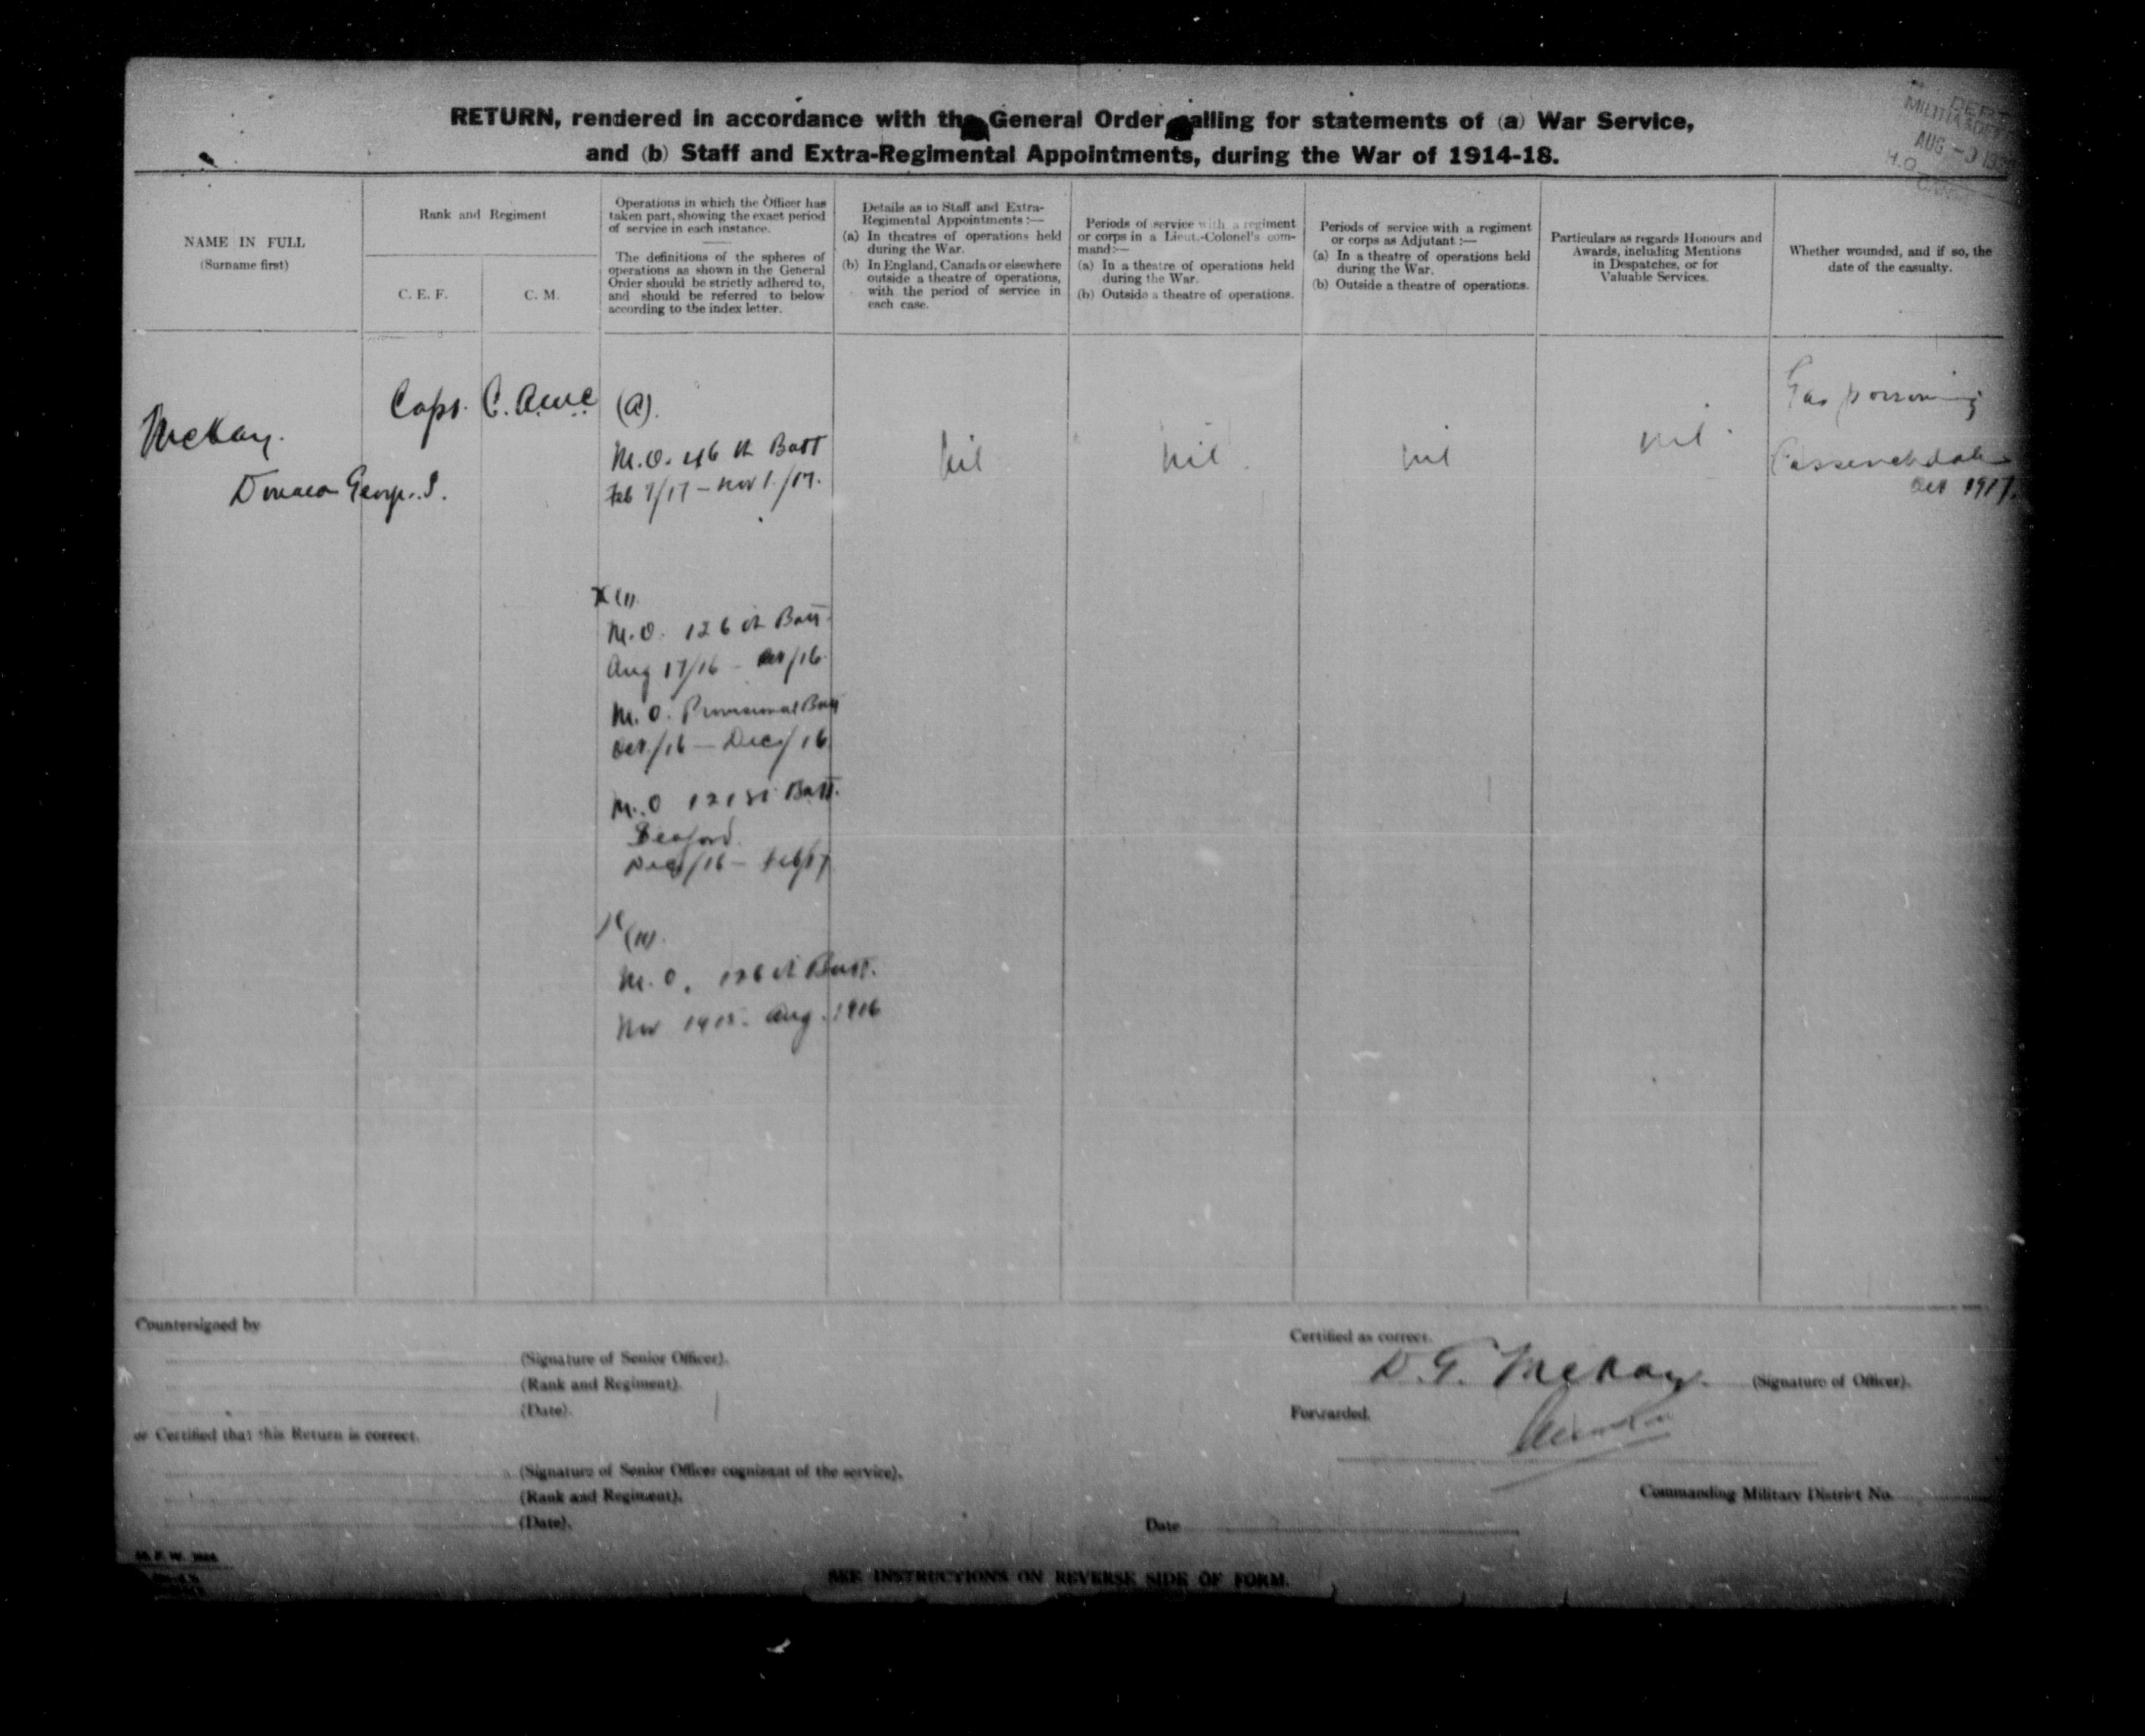 RETURN, rendered in accordance with the General Order calling for statements of (a) War Service,
and (b) Staff and Extra-Regimental Appointments, during the War of 1914-18.
DEPT
MILITIA & DEFENCE
AUG -9
H.Q.
NAME IN FULL
(Surname first)
Rank and Regiment
C. E. F.
C. M.
Operations in which the Officer has
taken part, showing the exact period
of service in each instance.
The definitions of the spheres of
operations as shown in the General
Order should be strictly adhered to,
and should be referred to below
according to the index letter.
Details as to Staff and Extra-
Regimental Appointments :—
(a) In theatres of operations held
during the War.
(b) In England, Canada or elsewhere
outside a theatre of operations,
with the period of service in
each case.
Periods of service with a regiment
or corps in a Lieut.-Colonel's com-
mand:—
(a) In a theatre of operations held
during the War.
(b) Outside a theatre of operations.
Periods of service with a regiment
or corps as Adjutant :—
(a) In a theatre of operations held
during the War.
(b) Outside a theatre of operations.
Particulars as regards Honours and
Awards, including Mentions
in Despatches, or for
Valuable Services.
Whether wounded, and if so, the
date of the casualty.
McKay.
George
Capt. C. A.M.C
(a).
M.O. 46 th Batt
Feb 7/17 – Nov 1./17.
nil
nil
nil
nil
Gas poisoning
Passchendale
Oct 1917.
(I)
M.O. 126 th Batt.
Aug 17/16 – Oct/16
M.O. Provisional Batt
Oct./16 – Dec/16
M.O 121 st Batt.
Seaford
Dec/16 – Feb/17
(II)
M.O. 126 th Batt.
Nov 1915 – Aug. 1916
Countersigned by
(Signature of Senior Officer).
(Rank and Regiment).
(Date).
or Certified that this Return is correct.
(Signature of Senior Officer cognizant of the service).
(Rank and Regiment).
(Date).
Certified as correct.
D. G. McKay.
(Signature of Officer).
Forwarded.
Commanding Military District No.
Date
SEE INSTRUCTIONS ON REVERSE SIDE OF FORM.